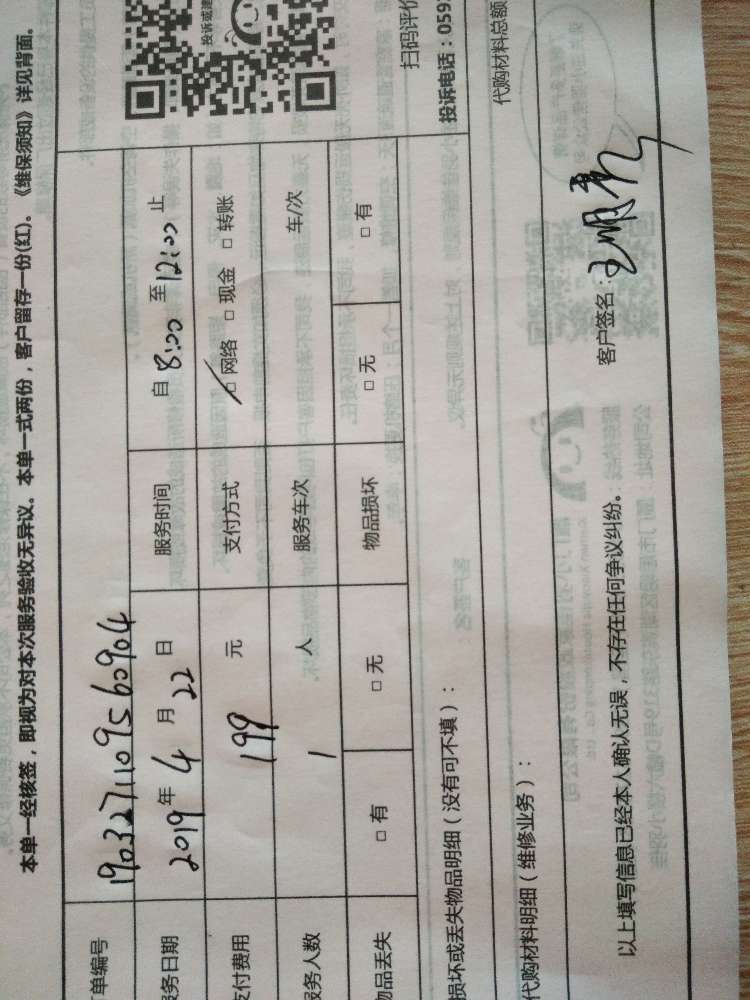 本单一经核签，即视为对本次服务验收无异议。本单一式两份，客户留存一份(红)。《维保须知》详见背面。
单编号 1903271109560904
服务日期 2019年4月22日 服务时间 自8:00至12:00止
支付费用 199元 支付方式 □网络 □现金 □转账
服务人数 1人 服务车次 车/次
物品丢失 □有 □无 物品损坏 □无 □有
投诉或建
扫码评价
损坏或丢失物品明细（没有可不填）：
投诉电话：059
代购材料明细（维修业务）：
代购材料总额
以上填写信息已经本人确认无误，不存在任何争议纠纷。
客户签名：